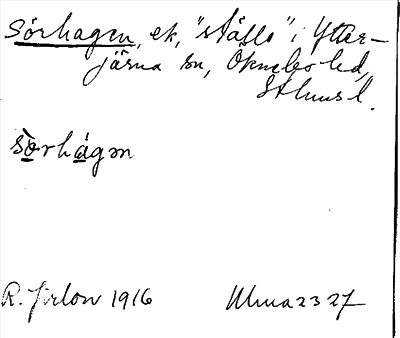 Sörhagen, ek, "ställe" i Ytter-
järna sn, Öknebo hd,
Sthms l.
sòrhágən
R. Jirlow 1916 Ulma 23 27